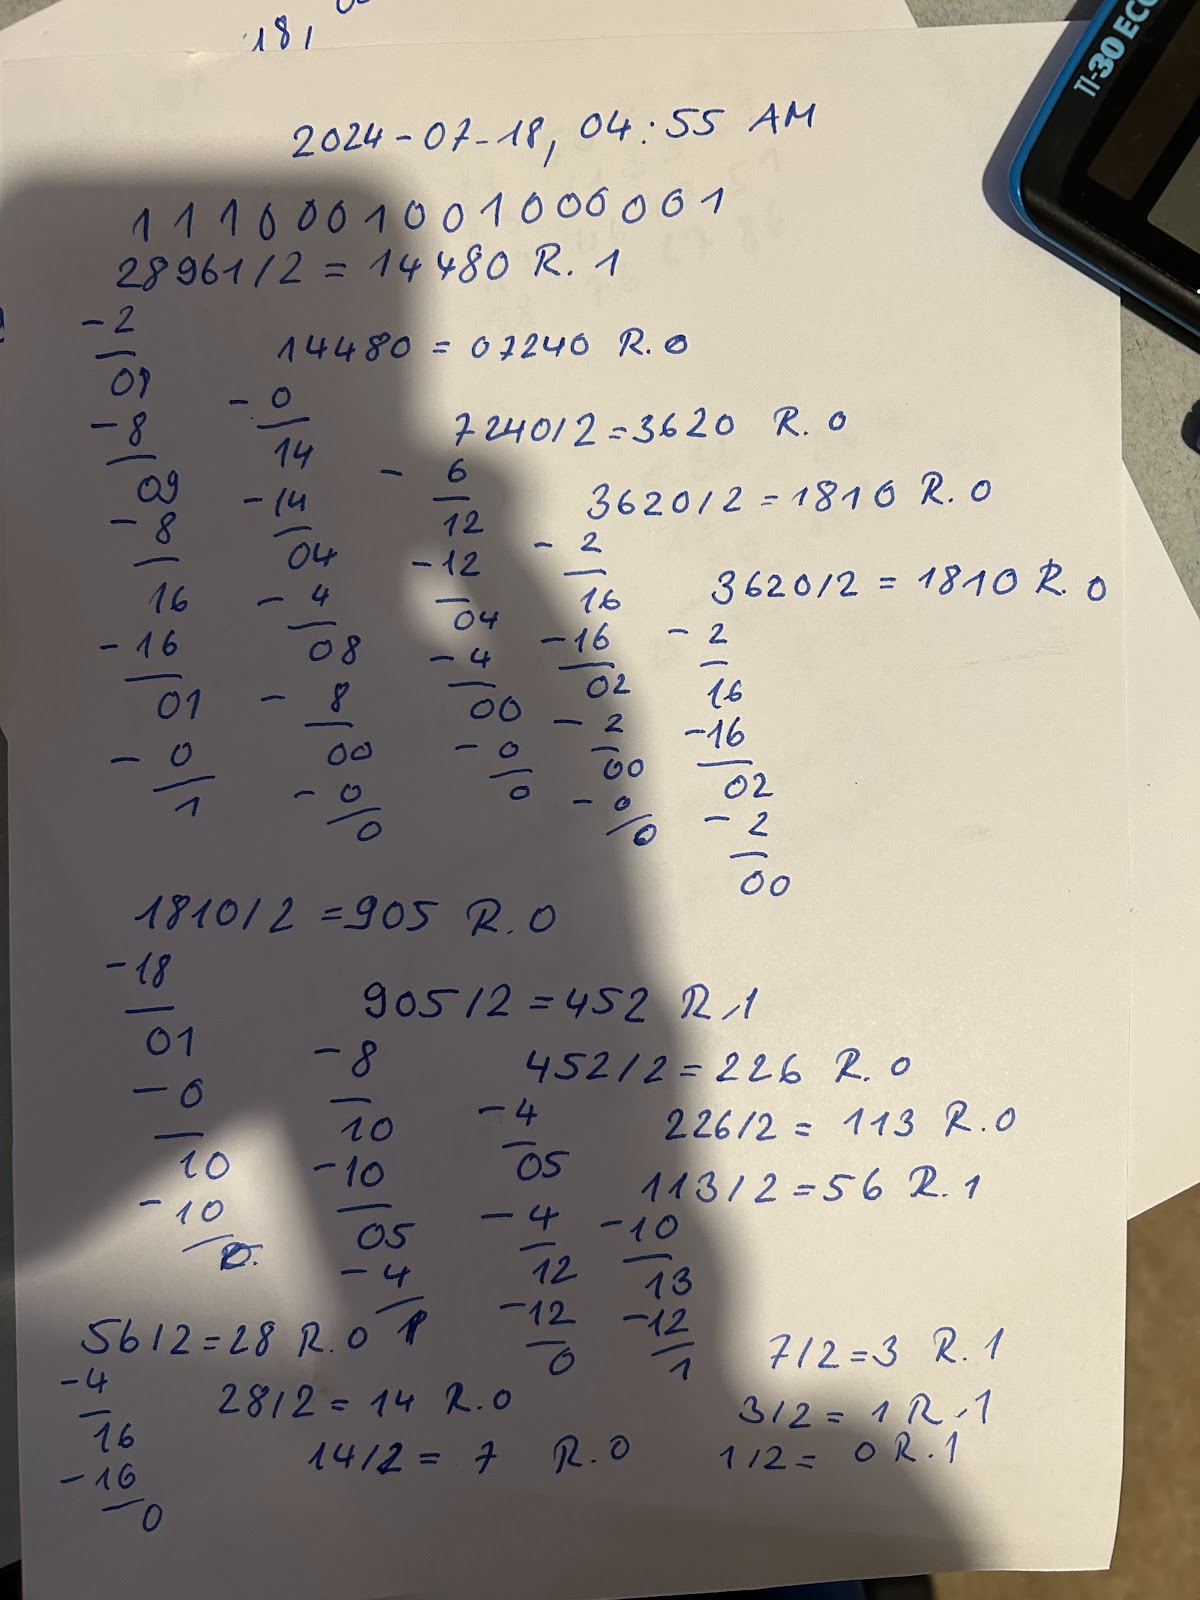 181
TI-30 ECO
2024-07-18, 04:55 AM
1110001001000001
28961/2 = 14480 R. 1
-2
09
-8
09
-8
16
-16
01
-0
1
14480 = 07240 R. 0
-0
14
-14
04
-4
08
-8
00
-0
0
7240/2 = 3620 R. 0
-6
12
-12
04
-4
00
-0
0
3620/2 = 1810 R. 0
-2
16
-16
02
-2
00
-0
0
3620/2 = 1810 R. 0
-2
16
-16
02
-2
00
1810/2 = 905 R. 0
-18
01
-0
10
-10
0.
905/2 = 452 R.1
-8
10
-10
05
-4
1
452/2 = 226 R. 0
-4
05
-4
12
-12
0
226/2 = 113 R.0
113/2 = 56 R. 1
-10
13
-12
1
56/2 = 28 R. 0
-4
16
-16
0
28/2 = 14 R.0
14/2 = 7 R.0
7/2 = 3 R. 1
3/2 = 1 R.1
1/2 = 0 R.1